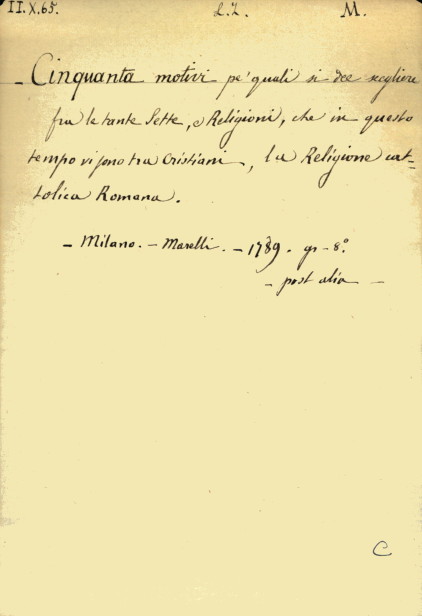 II.X.65. L.L. M.
– Cinquanta motivi pe' quali si dee scegliere
fra le tante Sette, e Religioni, che in questo
tempo vi sono tra Cristiani, la Religione cat=
tolica Romana.
– Milano. – Marelli. – 1789. gr – 8.°
– post alia –
C